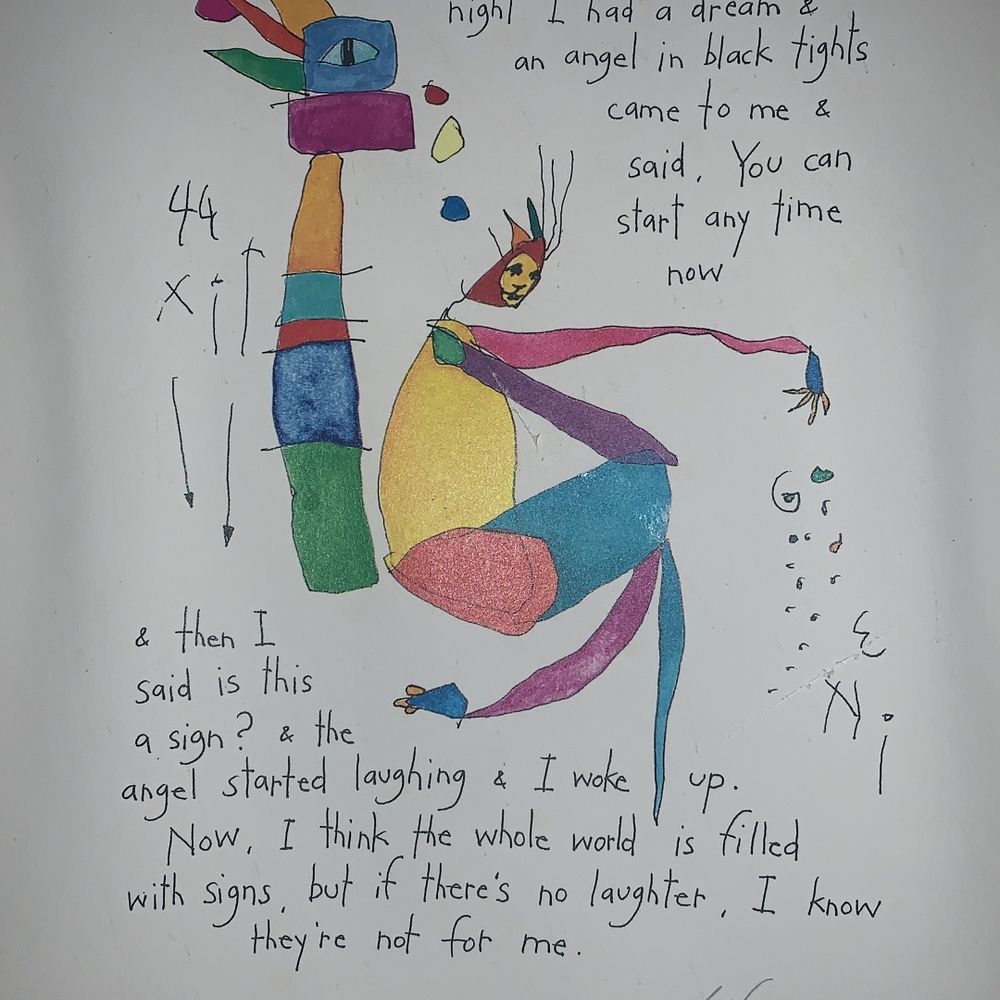 night I had a dream &
an angel in black tights
came to me &
said, You can
start any time
now
44
& then I
said is this
a sign? & the
angel started laughing & I woke up.
Now, I think the whole world is filled
with signs, but if there's no laughter, I know
they're not for me.